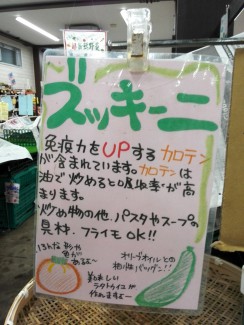 ズッキーニ
免疫力をUPするカロテン
が含まれています。カロテンは
油で炒めると吸収率が高
まります。
炒め物の他、パスタやスープの
具材、フライもOK!!
いろんな形や
色が
あるよ〜
オリーブオイルとの
相性バツグン!!
美味しい
ラタトゥイユが
作れますよー